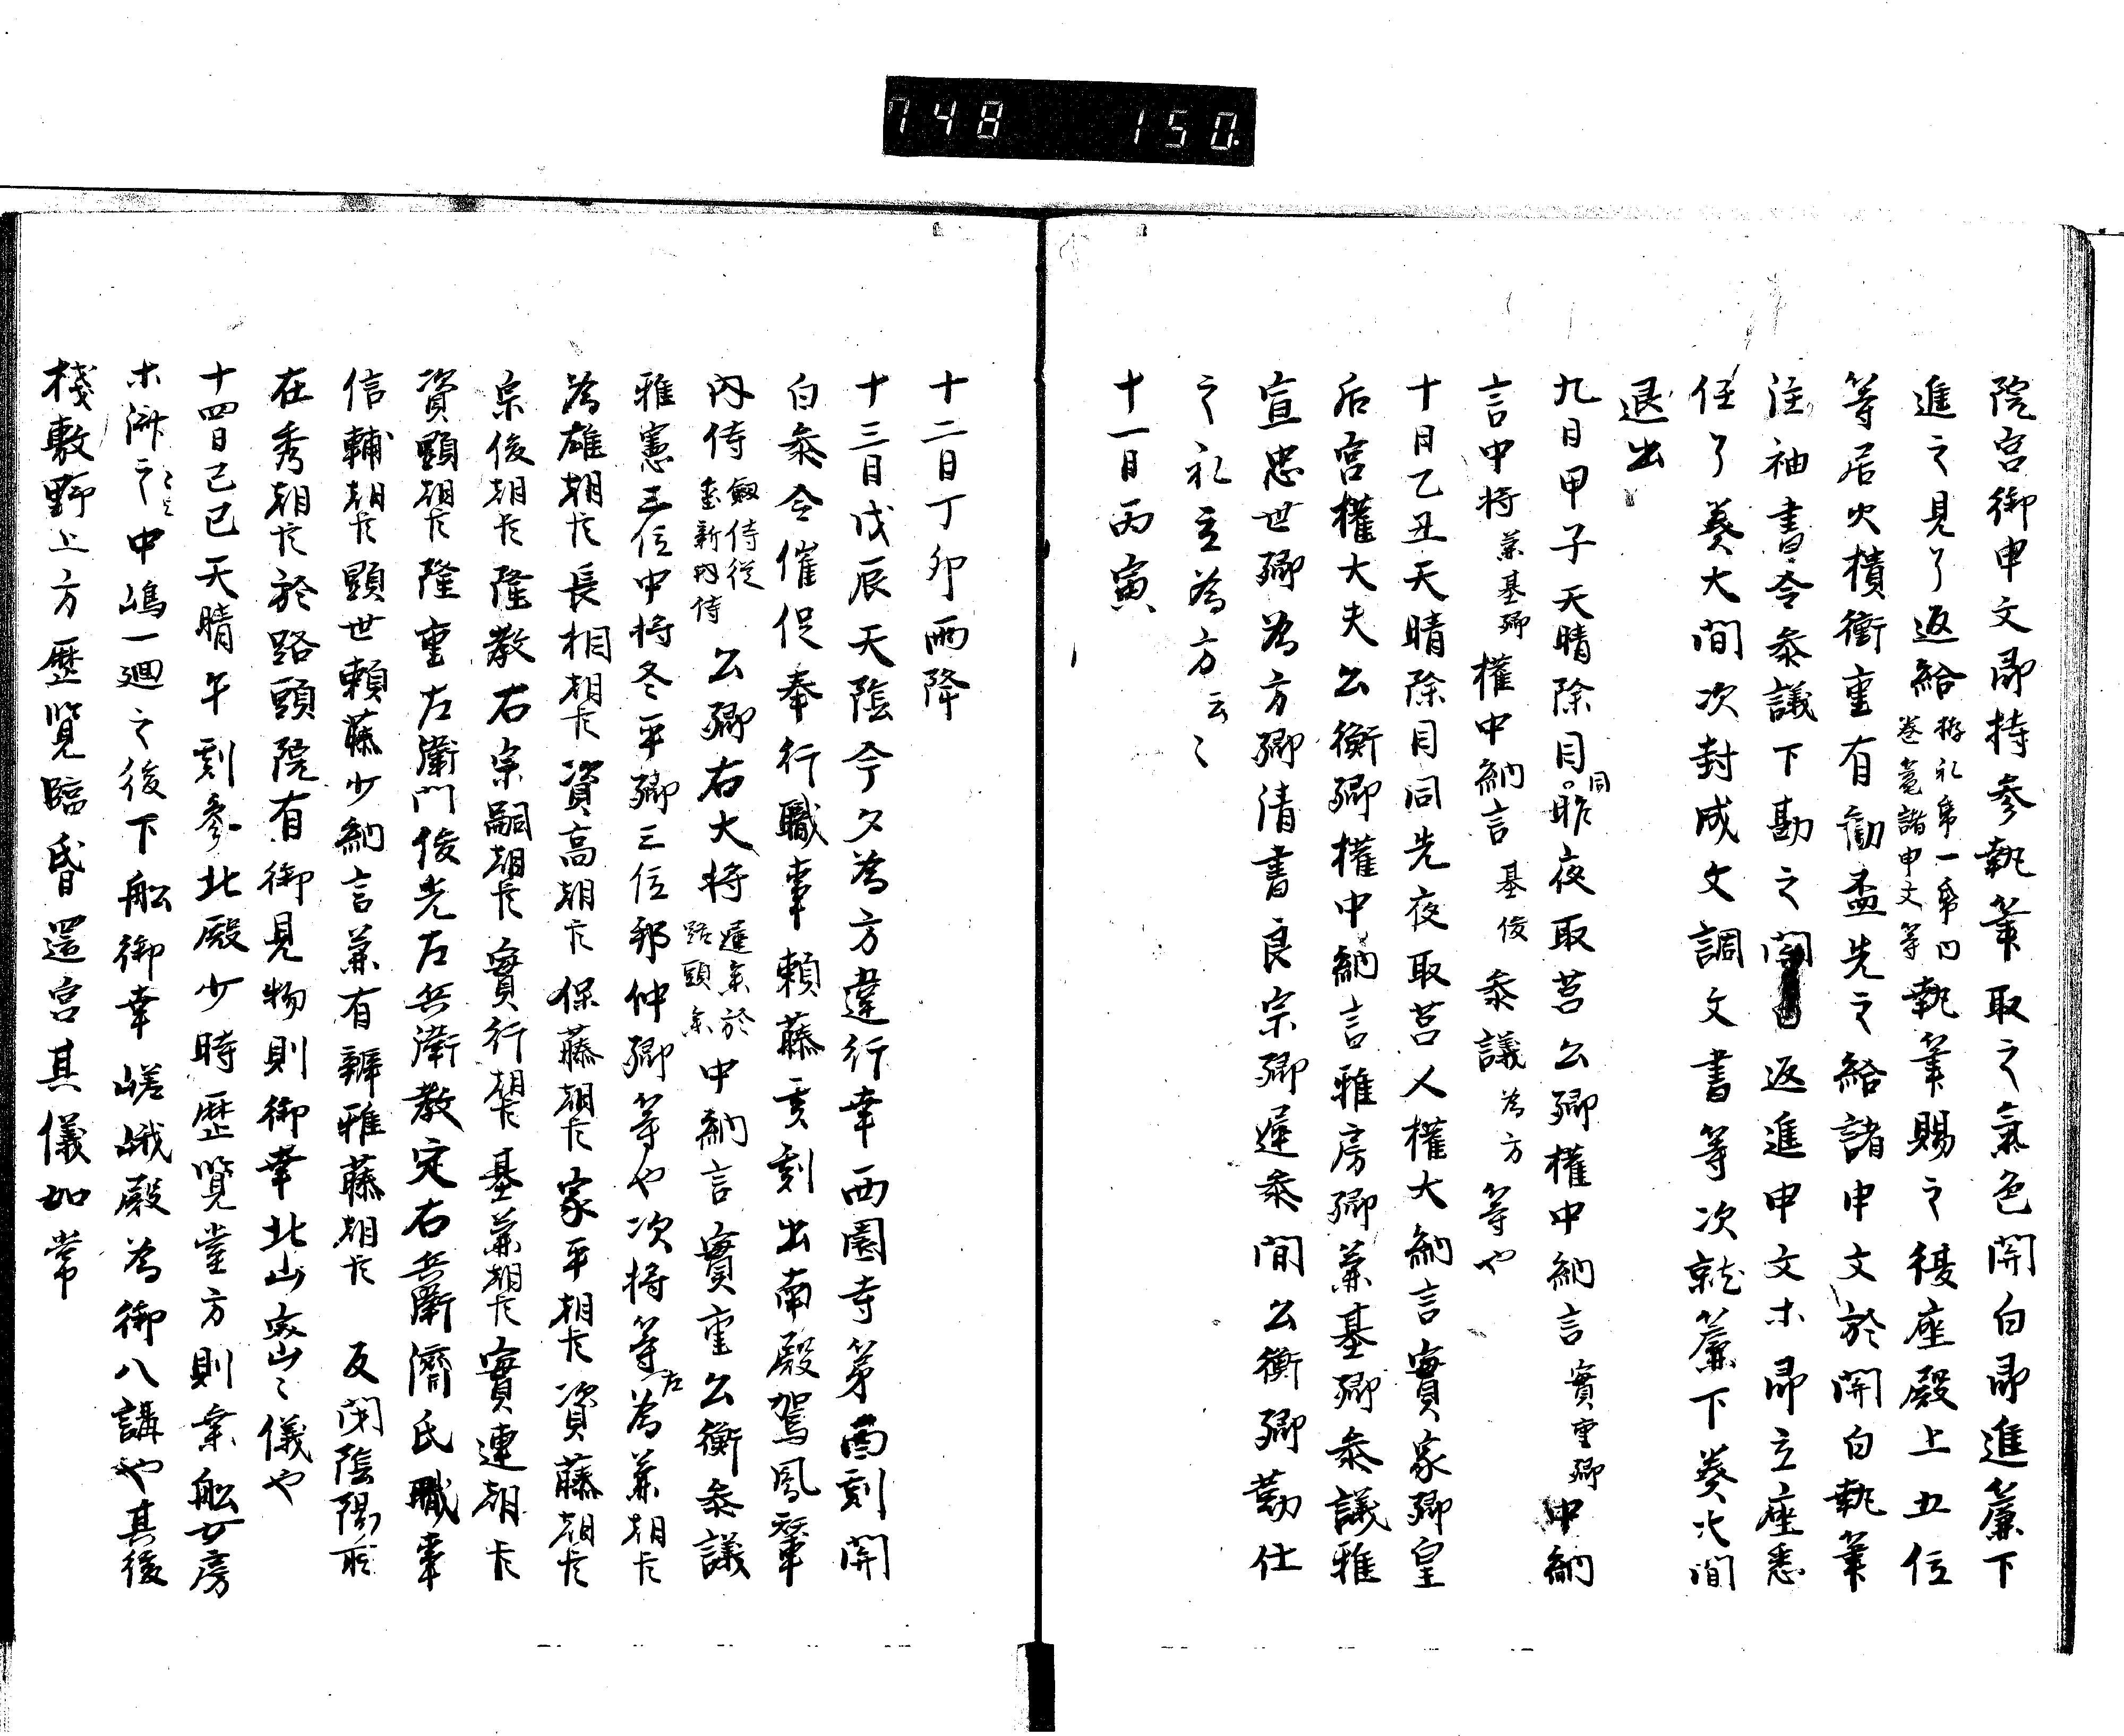 748 150
院宮御申文即持参執筆取之氣色関白即進簾下
進之見了返給挿礼帋一帋内巻意諸申文等執筆賜之復座殿上五位
等居火横衝重有勧盃先之給諸申文於関白執筆
注袖書令参議下勘之返進申文ホ即立座悉
任了葵大間次封成文調文書等次就簾下葵大間
退出
九日甲子天晴除目同昨夜取莒公卿權中納言實重卿中納
言中将兼基卿權中納言基俊参議為方等也
十日乙丑天晴除目同先夜取莒人權大納言實家卿皇
后宮權大夫公衡卿權中納言雅房卿兼基卿参議雅
宣忠世卿為方卿清書良宗卿遅参間公衡卿勤仕
之礼立為方云々
十一日丙寅
十二日丁卯雨降
十三日戊辰天陰今夕為方違行幸西園寺第酉刻関
白参令催促奉行職事頼藤亥刻出南殿駕鳳輦
内侍劔侍従璽新内侍公卿右大将遅参於路頭参中納言實重公衡参議
雅憲三位中将冬平卿三位邦仲卿等也次将等左為兼朝臣
為雄朝臣長相朝臣資高朝臣保藤朝臣家平朝臣資藤朝臣
宗俊朝臣隆教右宗嗣朝臣實行朝臣基兼朝臣實連朝臣
資顕朝臣隆重左衛門俊光左兵衛教定右兵衛濟氏職事
信輔朝臣顕世頼藤少納言兼有辨雅藤朝臣反閇陰陽師
在秀朝臣於路頭院有御見物則御幸北山密々儀也
十四日己巳天晴午刻参北殿少時歴覧堂方則乗舩女房
ホ泝之中嶋一廻之後下舩御幸嵯峨殿為御八講也其後
棧敷野上方歴覧臨昏還宮其儀如常